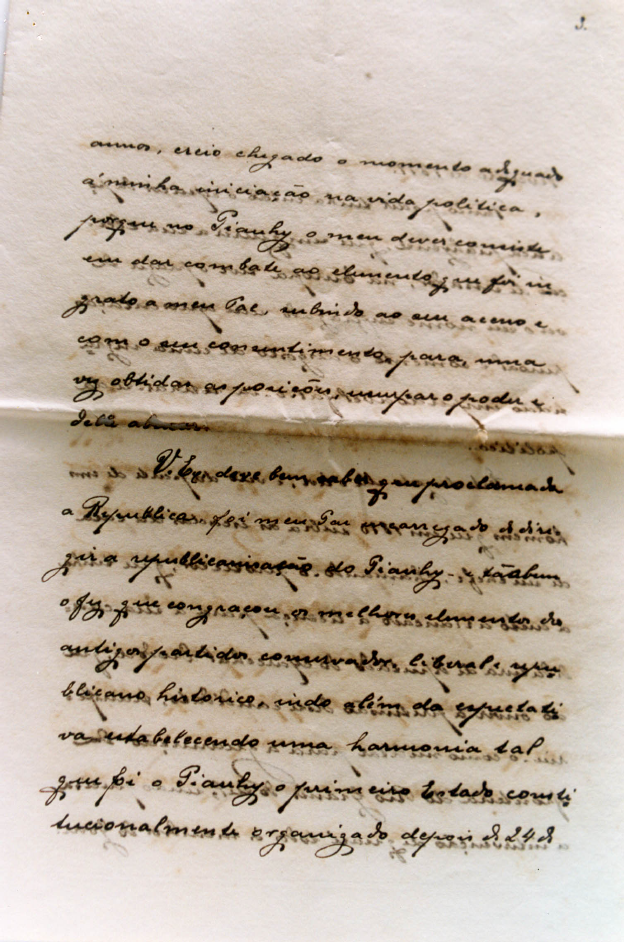 3.
annos, creio chegado o momento adequado
á minha iniciação na vida politica,
porque no Piauhy o meu dever consiste
em dar combate ao elemento que foi in
grato a meu Pae, subindo ao seu aceno e
com o seu consentimento, para, uma
vez obtidas as posições, usurpar o poder e
delle abusar.
V. Ex. deve bem saber que proclamada
a Republica, foi meu Pae encarregado de diri
gir a republicanisação do Piauhy e tão bem
o fez que congraçou os melhores elementos dos
antigos partidos conservador, liberal e repu
blicano historico, indo além da espectati
va estabelecendo uma harmonia tal
que foi o Piauhy o primeiro Estado consti
tucionalmente organizado depois de 24 de